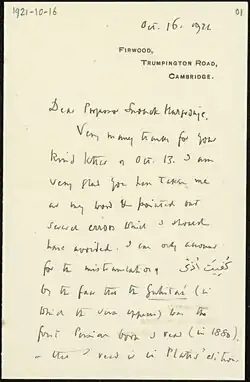 1921-10-16
01
Oct. 16. 1921
FIRWOOD,
TRUMPINGTON ROAD,
CAMBRIDGE.
Dear Professor Snouck Hurgronje,
Very many thanks for your
kind letter of Oct. 13. I am
very glad you have taken me
at my word & pointed out
several errors which I should
have avoided. I can only account
for the mistranslation of
كُفِيتَ أَذًى
by the fact that the Gulistán (in
which the verse appears) was the
first Persian book I read (in 1880),
& this I read in in Platts' edition